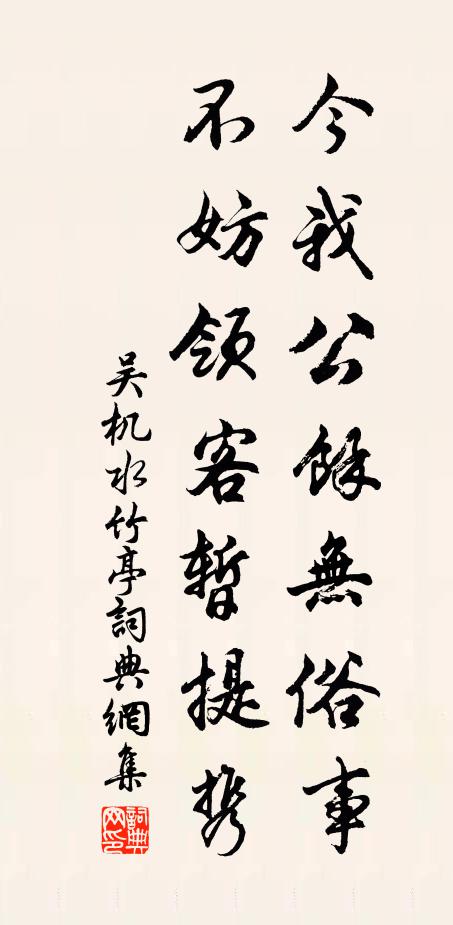 今我公餘無俗事
不妨領客暫提携
吴机水竹亭詞典網集
詞典网印